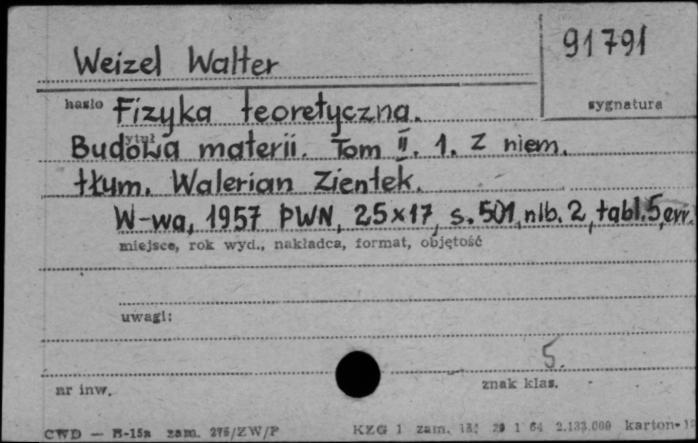 Weizel Walter 91791
hasło Fizyka teoretyczna. sygnatura
tytuł
Budowa materii. Tom II. 1. Z niem.
tłum. Walerian Zientek.
W-wa, 1957 PWN, 25x17, s. 501, nlb. 2, tabl. 5, err.
miejsce, rok wyd., nakładca, format, objętość
uwagi:
5.
nr inw. znak klas.
CWD — B-15a zam. 276/ZW/P KZG 1 zam. 1 64 2.133.000 karton